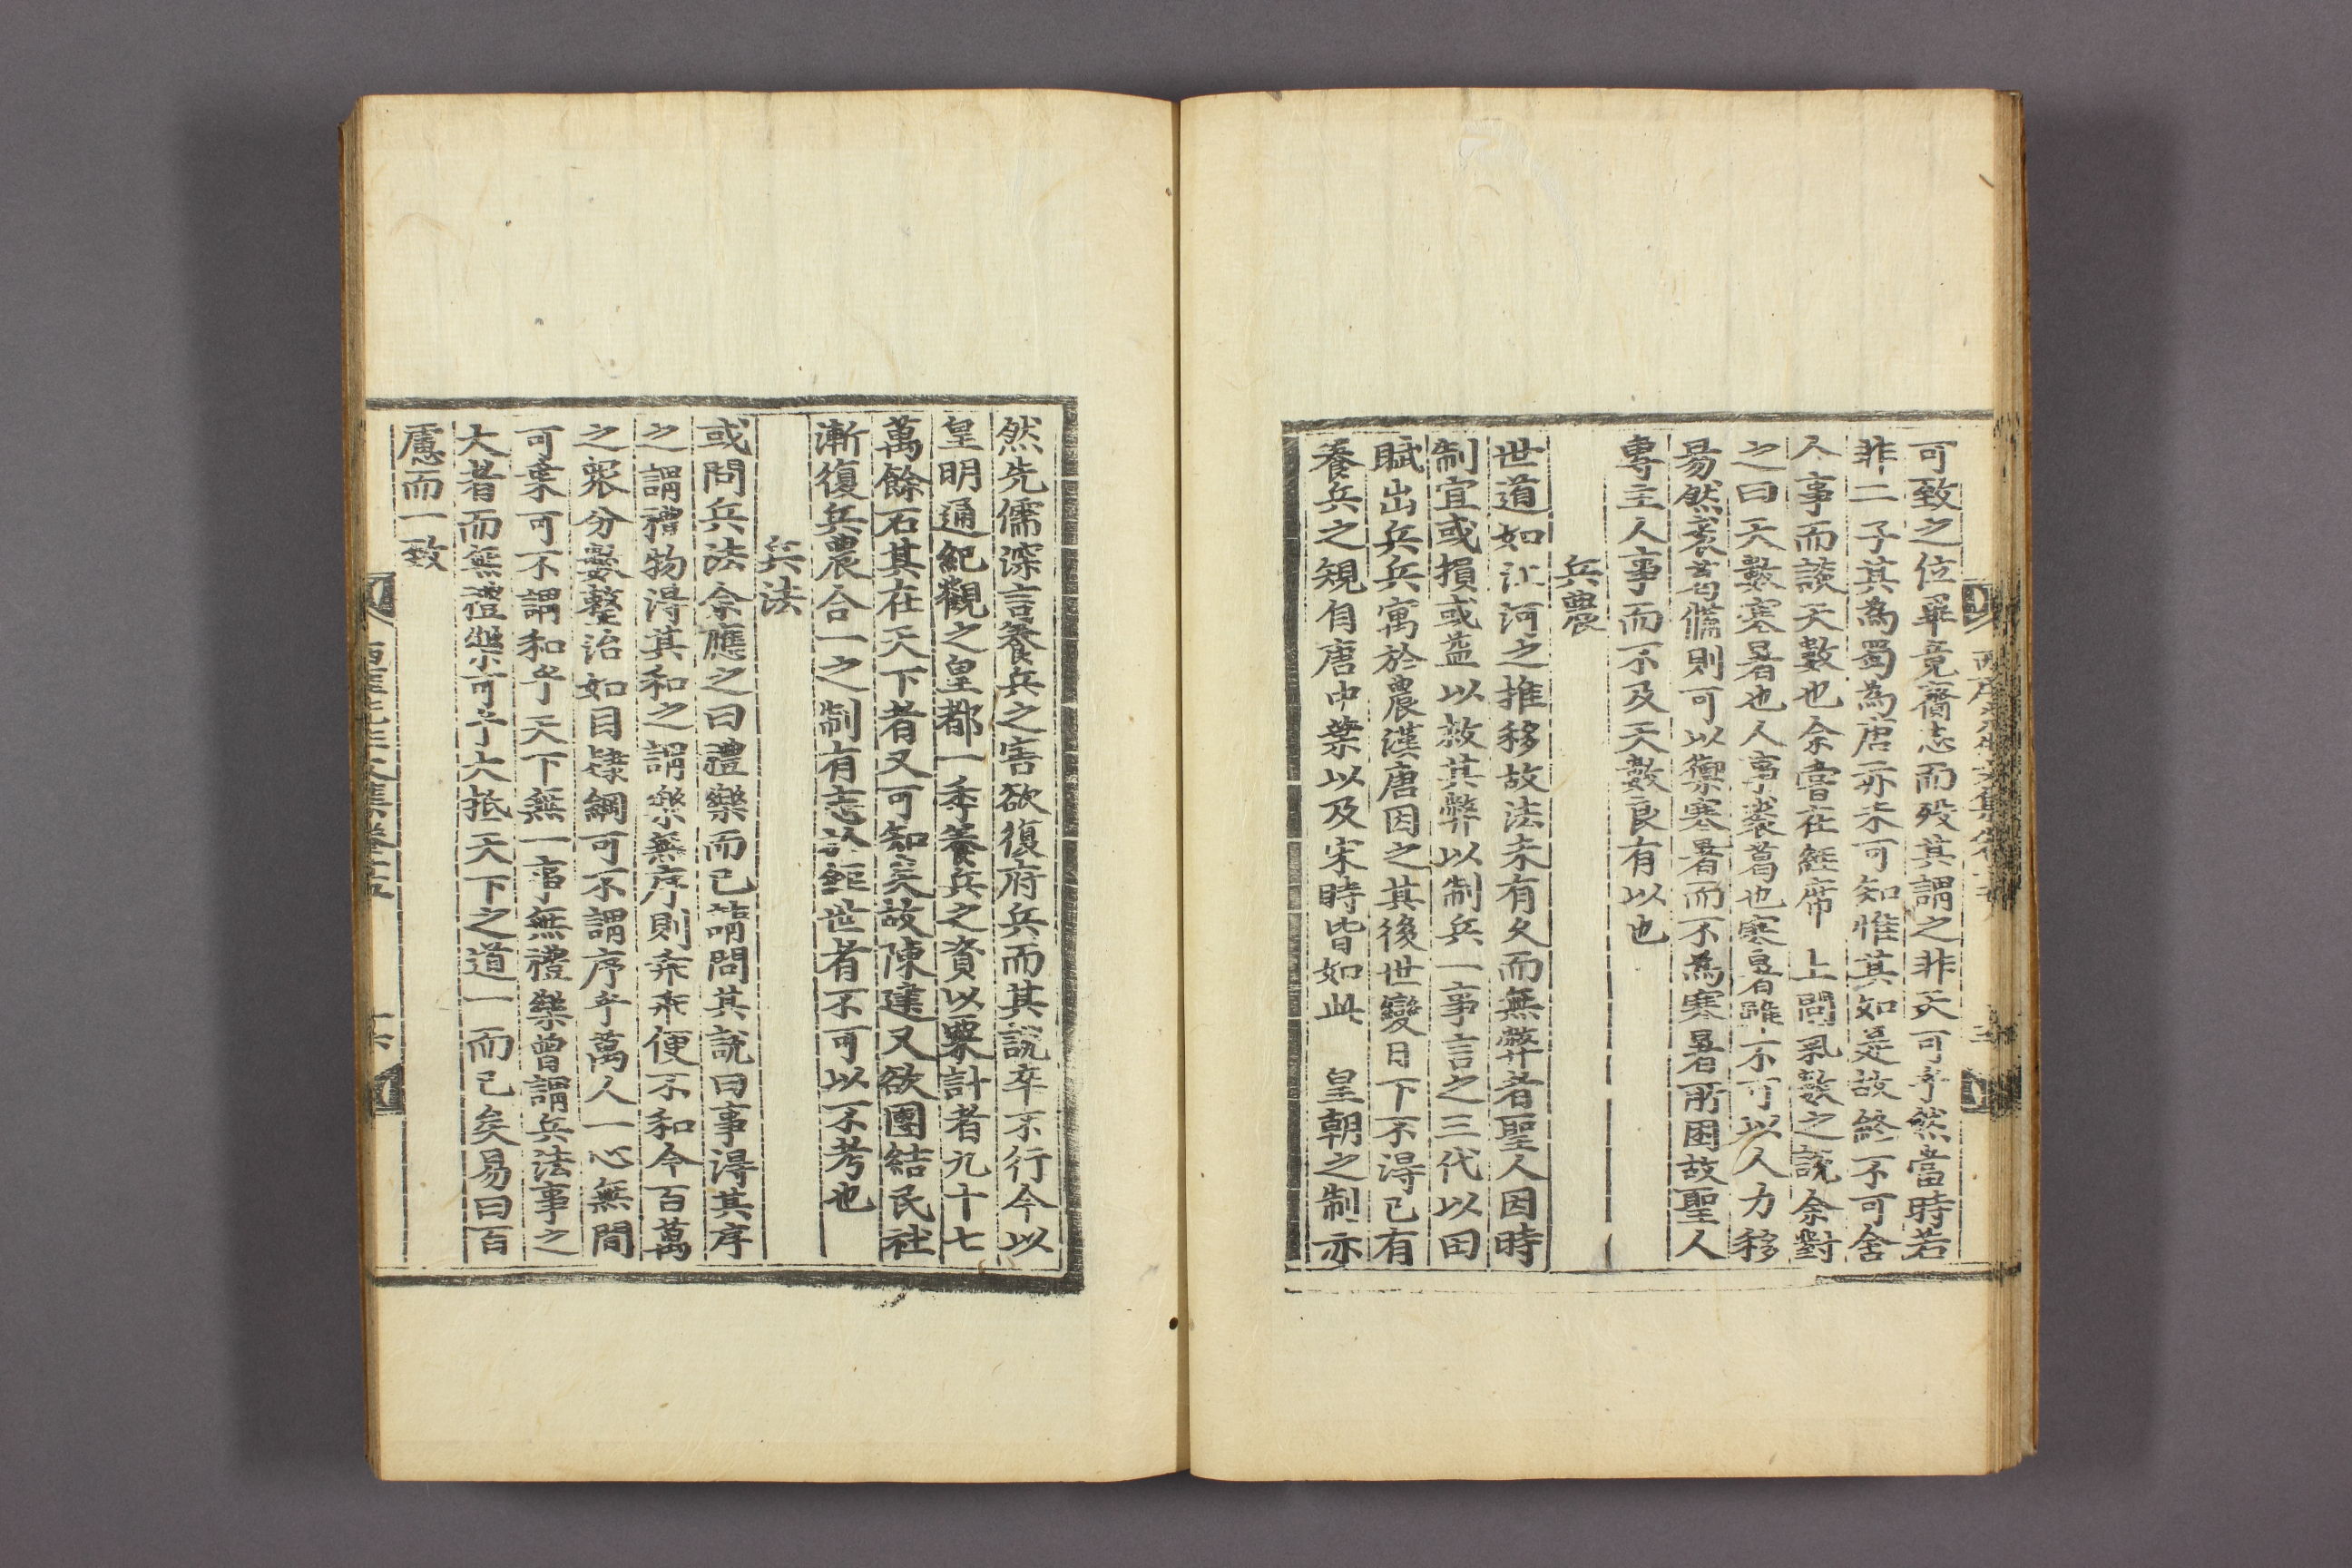 可致之位畢竟齎志而歿其謂之非天可乎然當時若
非二子其為蜀為唐亦未可知惟其如是故終不可舍
人事而談天數也余嘗在經席 上問氣數之說余對
之曰天數寒暑也人事裘葛也寒暑雖不可以人力移
易然裘葛備則可以禦寒暑而不為寒暑所困故聖人
專主人事而不及天數良有以也
兵農
世道如江河之推移故法未有久而無弊者聖人因時
制宜或損或益以救其弊以制兵一事言之三代以田
賦出兵兵寓於農漢唐因之其後世變日下不得已有
養兵之規自唐中葉以及宋時皆如此 皇朝之制亦
然先儒深言養兵之害欲復府兵而其說卒不行今以
皇明通紀觀之皇都一年養兵之資以粟計者九十七
萬餘石其在天下者又可知矣故陳建又欲團結民社
漸復兵農合一之制有志於經世者不可以不考也
兵法
或問兵法余應之曰禮樂而已請問其說曰事得其序
之謂禮物得其和之謂樂無序則乖乖便不和今百萬
之眾分數整治如目隸綱可不謂序乎萬人一心無間
可棄可不謂和乎天下無一事無禮樂曾謂兵法事之
大者而無禮樂可乎大抵天下之道一而已矣易曰百
慮而一致
西厓先生文集卷十五
十六